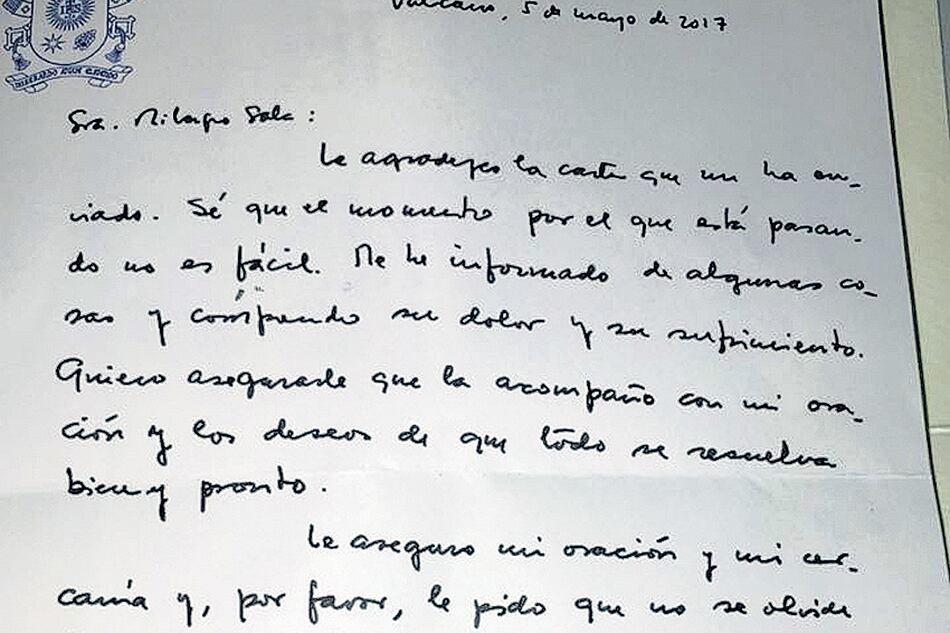 Vaticano, 5 de mayo de 2017
MISERANDO ATQUE ELIGENDO
Sra. Milagro Sala :
Le agradezco la carta que me ha en-
viado. Sé que el momento por el que está pasan-
do no es fácil. Me he informado de algunas co-
sas y comprendo su dolor y su sufrimiento.
Quiero asegurarle que la acompaño con mi ora-
ción y los deseos de que todo se resuelva
bien y pronto.
Le aseguro mi oración y mi cer-
canía y, por favor, le pido que no se olvide